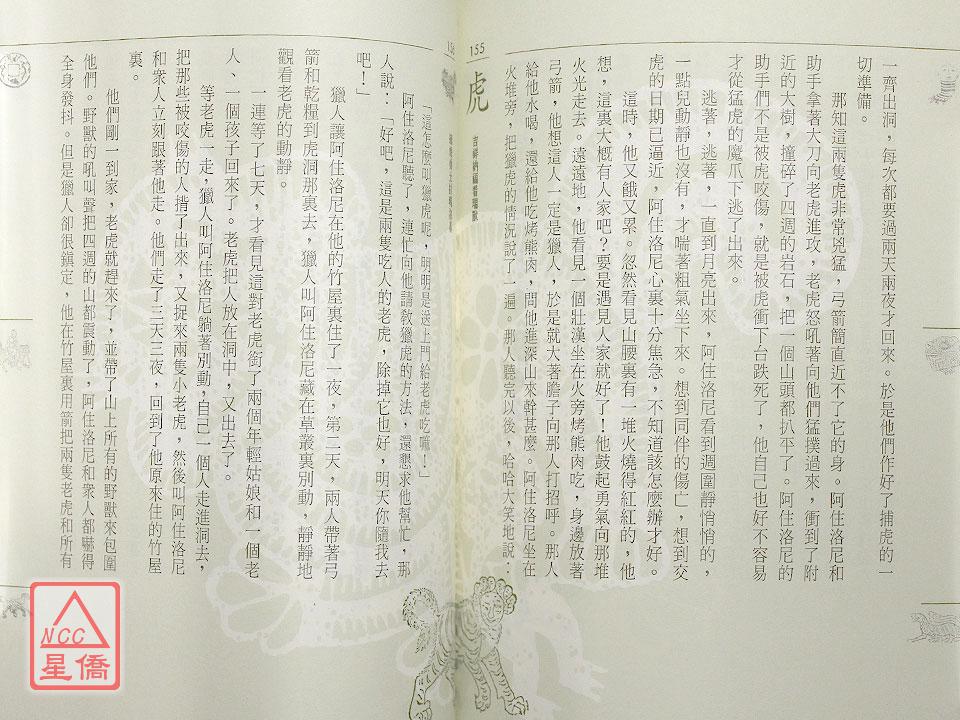 155
虎
吉祥納福看瑞獸
一齊出洞，每次都要過兩天兩夜才回來。於是他們作好了捕虎的一
切準備。
那知這兩隻虎非常兇猛，弓箭簡直近不了它的身。阿住洛尼和
助手拿著大刀向老虎進攻，老虎怒吼著向他們猛撲過來，衝到了附
近的大樹，撞碎了四週的岩石，把一個山頭都扒平了。阿住洛尼的
助手們不是被虎咬傷，就是被虎衝下台跌死了，他自己也好不容易
才從猛虎的魔爪下逃了出來。
逃著，逃著，一直到月亮出來，阿住洛尼看到週圍靜悄悄的，
一點兒動靜也沒有，才喘著粗氣坐下來。想到同伴的傷亡，想到交
虎的日期已逼近，阿住洛尼心裏十分焦急，不知道該怎麼辦才好。
這時，他又餓又累。忽然看見山腰裏有一堆火燒得紅紅的，他
想，這裏大概有人家吧？要是遇見人家就好了！他鼓起勇氣向那堆
火光走去。遠遠地，他看見一個壯漢坐在火旁烤熊肉吃，身邊放著
弓箭，他想這人一定是獵人，於是就大著膽子向那人打招呼。那人
給他水喝，還給他吃烤熊肉，問他進深山來幹甚麼。阿住洛尼坐在
火堆旁，把獵虎的情況說了一遍。那人聽完以後，哈哈大笑地說：
「這怎麼叫獵虎呢，明明是送上門給老虎吃嘛！」
阿住洛尼聽了，連忙向他請教獵虎的方法，還懇求他幫忙，那
人說：「好吧，這是兩隻吃人的老虎，除掉它也好，明天你隨我去
吧！」
獵人讓阿住洛尼在他的竹屋裏住了一夜，第二天，兩人帶著弓
箭和乾糧到虎洞那裏去，獵人叫阿住洛尼藏在草叢裏別動，靜靜地
觀看老虎的動靜。
一連等了七天，才看見這對老虎銜了兩個年輕姑娘和一個老
人、一個孩子回來了。老虎把人放在洞中，又出去了。
等老虎一走，獵人叫阿住洛尼躺著別動，自己一個人走進洞去，
把那些被咬傷的人揹了出來，又捉來兩隻小老虎，然後叫阿住洛尼
和衆人立刻跟著他走。他們走了三天三夜，回到了他原來住的竹屋
裏。
他們剛一到家，老虎就趕來了，並帶了山上所有的野獸來包圍
他們。野獸的吼叫聲把四週的山都震動了，阿住洛尼和衆人都嚇得
全身發抖。但是獵人卻很鎮定，他在竹屋裏用箭把兩隻老虎和所有
NCC
星僑